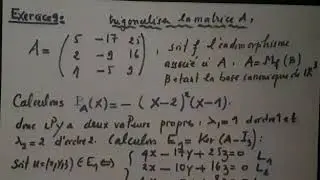 Exercice 9: trigonaliser la matrice A,
A = ( 5 -17 25
2 -9 16
1 -5 9 ) , soit f l'endomorphisme
associé à A, A = M_f(B)
B étant la base canonique de IR³
Calculons P_A(X) = -(X-2)²(X-1).
donc il y a deux valeurs propres, λ₁=1 d'ordre 1 et
λ₂=2 d'ordre 2. Calculons E₁ = Ker(A-I₃)
Soit u=(x,y,z) ∈ E₁ ⇔ { 4x - 17y + 25z = 0 L₁
2x - 10y + 16z = 0 L₂